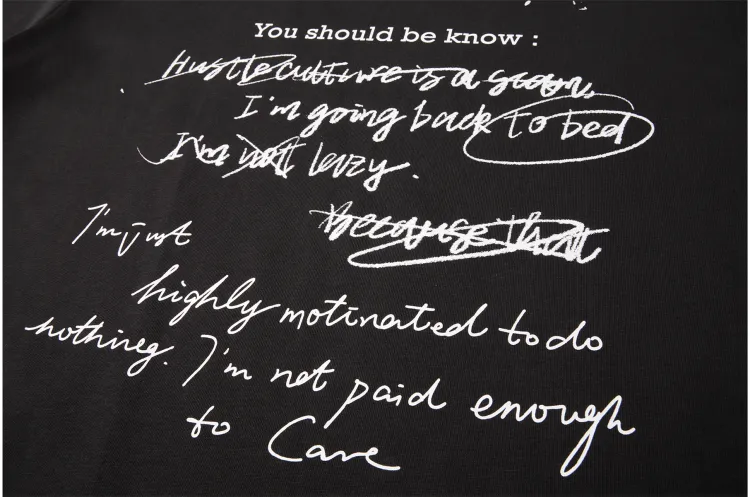 You should be know :
Hustle culture is a scam.
I'm going back to bed
I'm not lazy.
because that
I'm just
highly motinated to do
nothing. I'm not paid enough
to Care